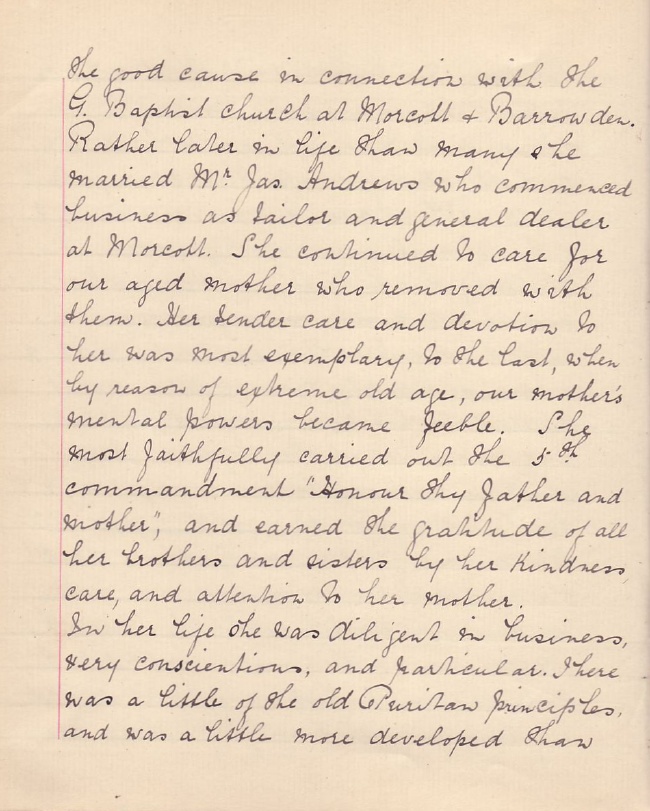 the good cause in connection with the
G. Baptist church at Morcott & Barrowden.
Rather later in life than many she
married Mr. Jas. Andrews who commenced
business as tailor and general dealer
at Morcott. She continued to care for
our aged mother who removed with
them. Her tender care and devotion to
her was most exemplary, to the last, when
by reason of extreme old age, our mother's
mental powers became feeble. She
most faithfully carried out the 5th
commandment "Honour thy father and
mother", and earned the gratitude of all
her brothers and sisters by her kindness,
care, and attention to her mother.
In her life she was diligent in business,
very conscientious, and particular. There
was a little of the old Puritan principles,
and was a little more developed than